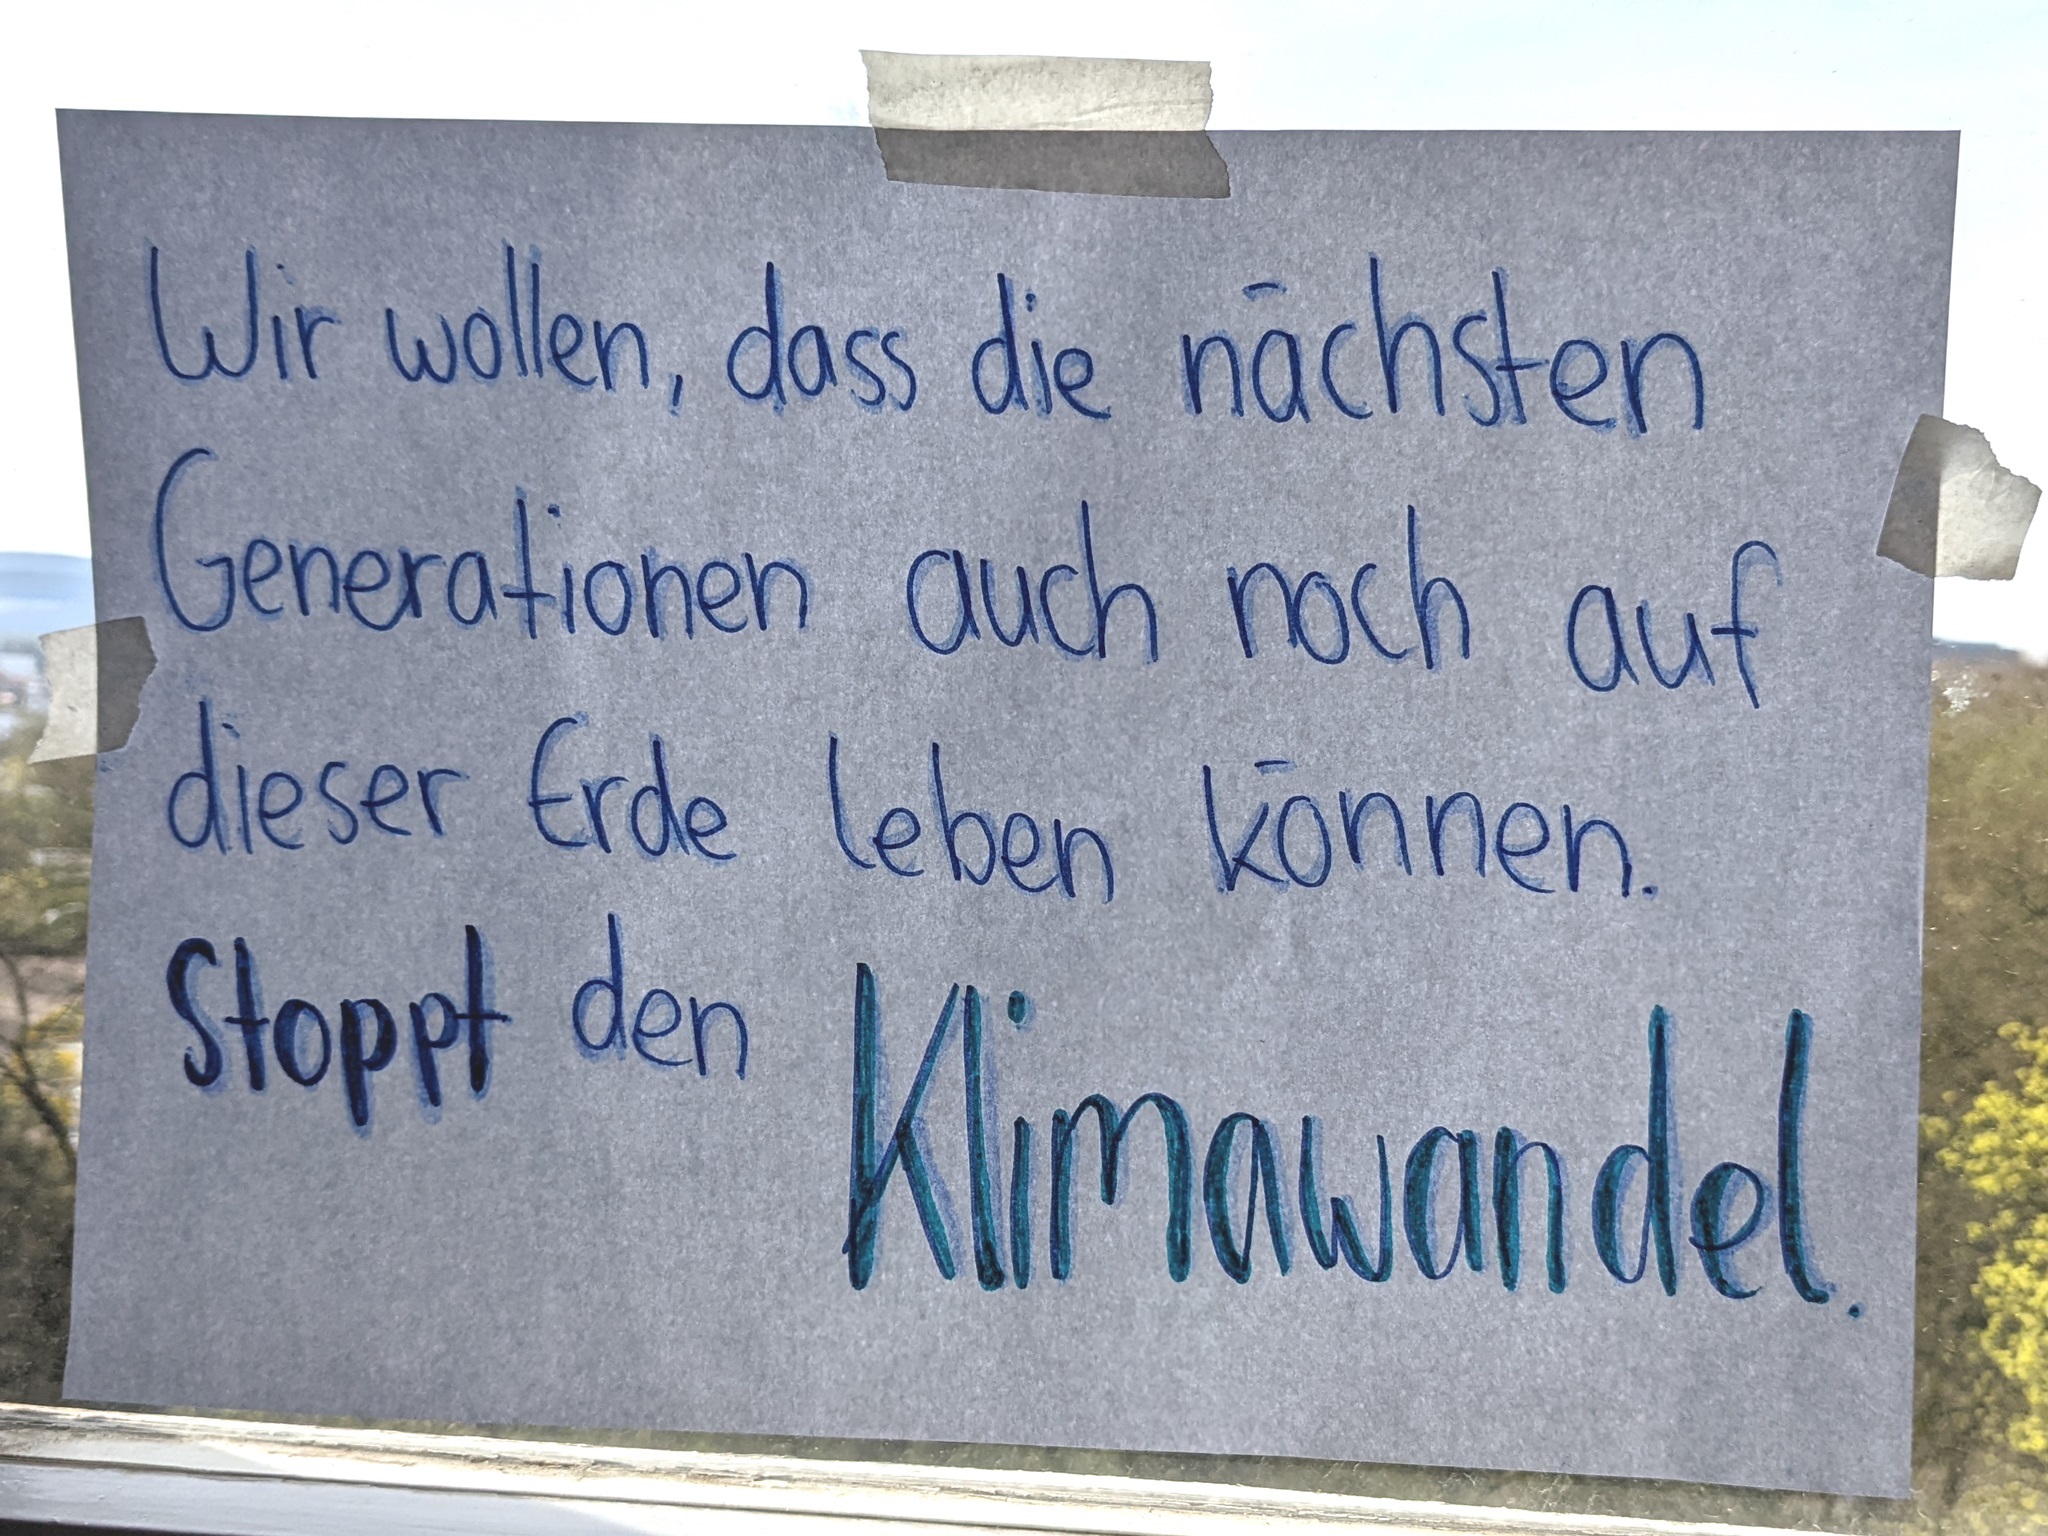 Wir wollen, dass die nächsten
Generationen auch noch auf
dieser Erde leben können.
Stoppt den Klimawandel.